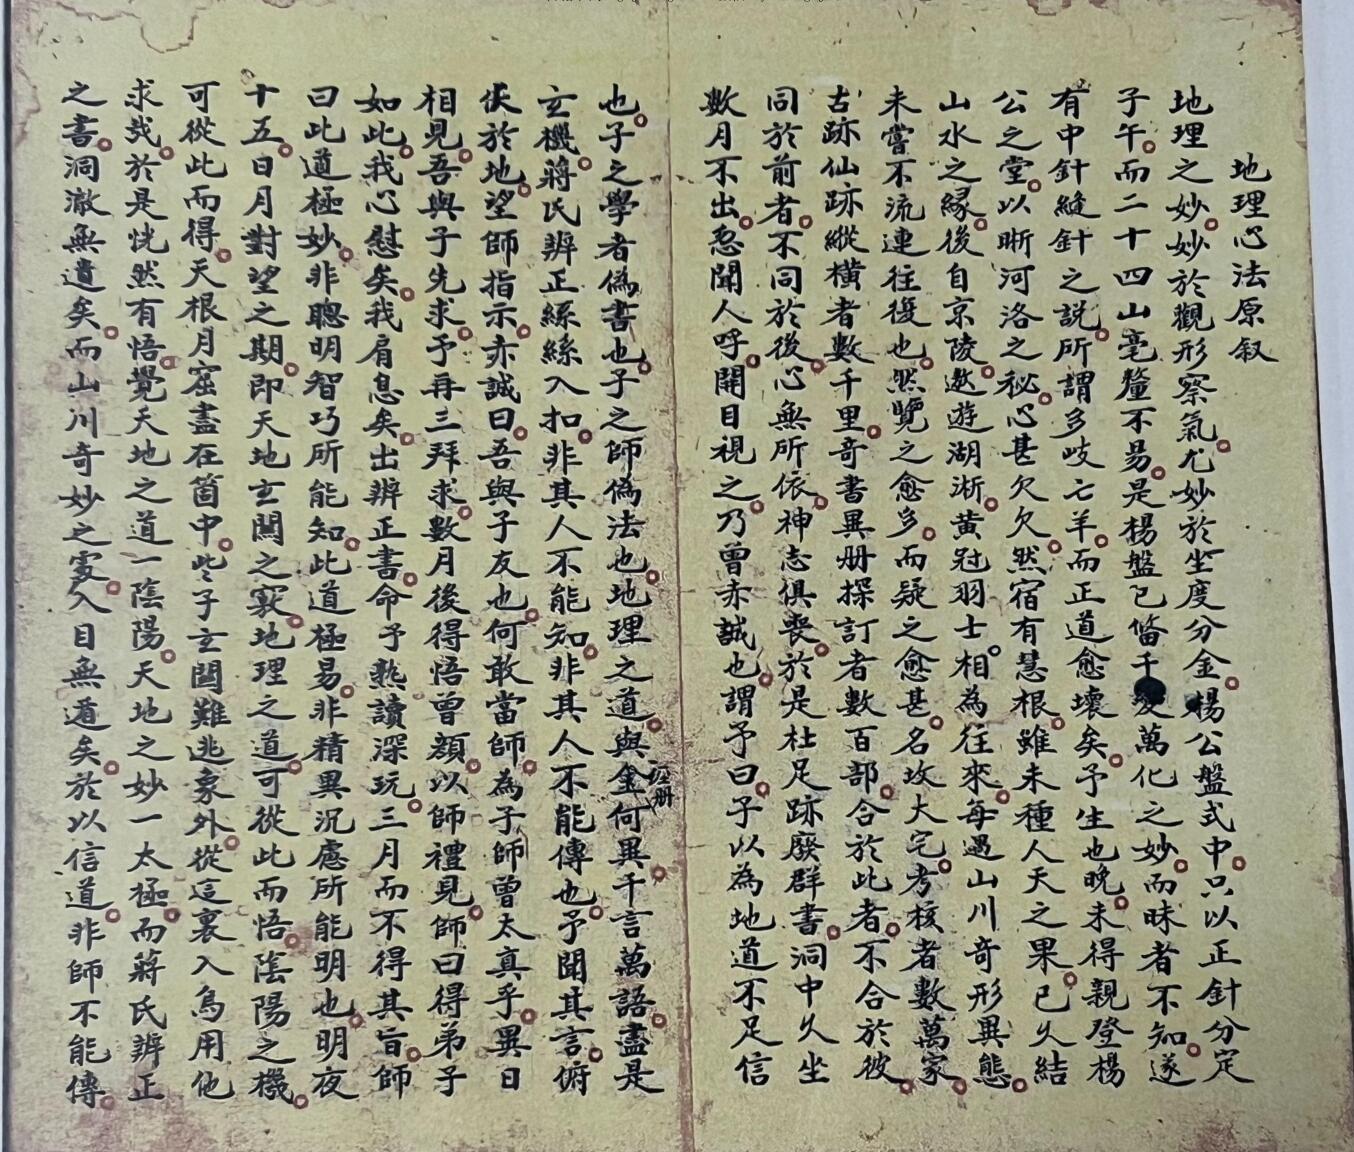 地理心法原叙
地理之妙妙於觀形察氣尤妙於坐度分金楊公盤式中只以正針分定
子午而二十四山毫釐不易是楊盤已俻千變萬化之妙而昧者不知遂
有中針縫針之説所謂多歧亡羊而正道愈壞矣予生也晩未得親登楊
公之堂以晰河洛之秘心甚欠欠然宿有慧根雖未種人天之果已久結
山水之緣後自京陵遨遊湖淅黄冠羽士相為往來每遇山川奇形異態
未嘗不流連往復也然覽之愈多而疑之愈甚名坟大宅考核者數萬家
古跡仙跡縱横者數千里奇書異册探訂者數百部合於此者不合於彼
同於前者不同於後心無所依神志俱喪於是杜足跡廢群書洞中久坐
數月不出忽聞人呼開目視之乃曾赤誠也謂予曰子以為地道不足信
也子之學者偽書也子之師偽法也地理之道與金何異千言萬語盡是
玄機蔣氏辨正絲絲入扣非其人不能知非其人不能傳也予聞其言俯
伏於地望師指示赤誠曰吾與子友也何敢當師為子師曾太真乎異日
相見吾與子先求予再三拜求數月後得悟曾顔以師禮見師曰得弟子
如此我心慰矣我肩息矣出辨正書命予熟讀深玩三月而不得其旨師
曰此道極妙非聰明智巧所能知此道極易非精異況慮所能明也明夜
十五日月對望之期即天地玄關之竅地理之道可從此而悟陰陽之機
可從此而得天根月窟盡在箇中些子玄関難逃象外從這裏入烏用他
求㦲於是恍然有悟覺天地之道一陰陽天地之妙一太極而蔣氏辨正
之書洞澈無遺矣而山川奇妙之處入目無遁矣於以信道非師不能傳